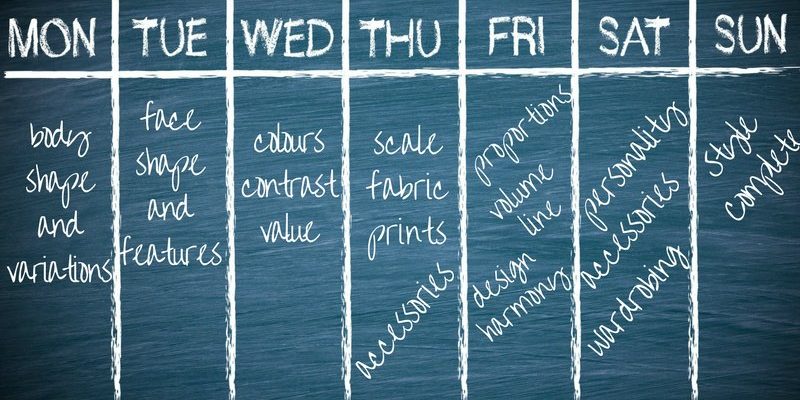 MON TUE WED THU FRI SAT SUN
body
shape
and
variations
face
shape
and
features
colours
contrast
value
scale
fabric
prints
accessories
proportions
volume
line
design
harmony
personality
accessories
wardrobing
style
complete